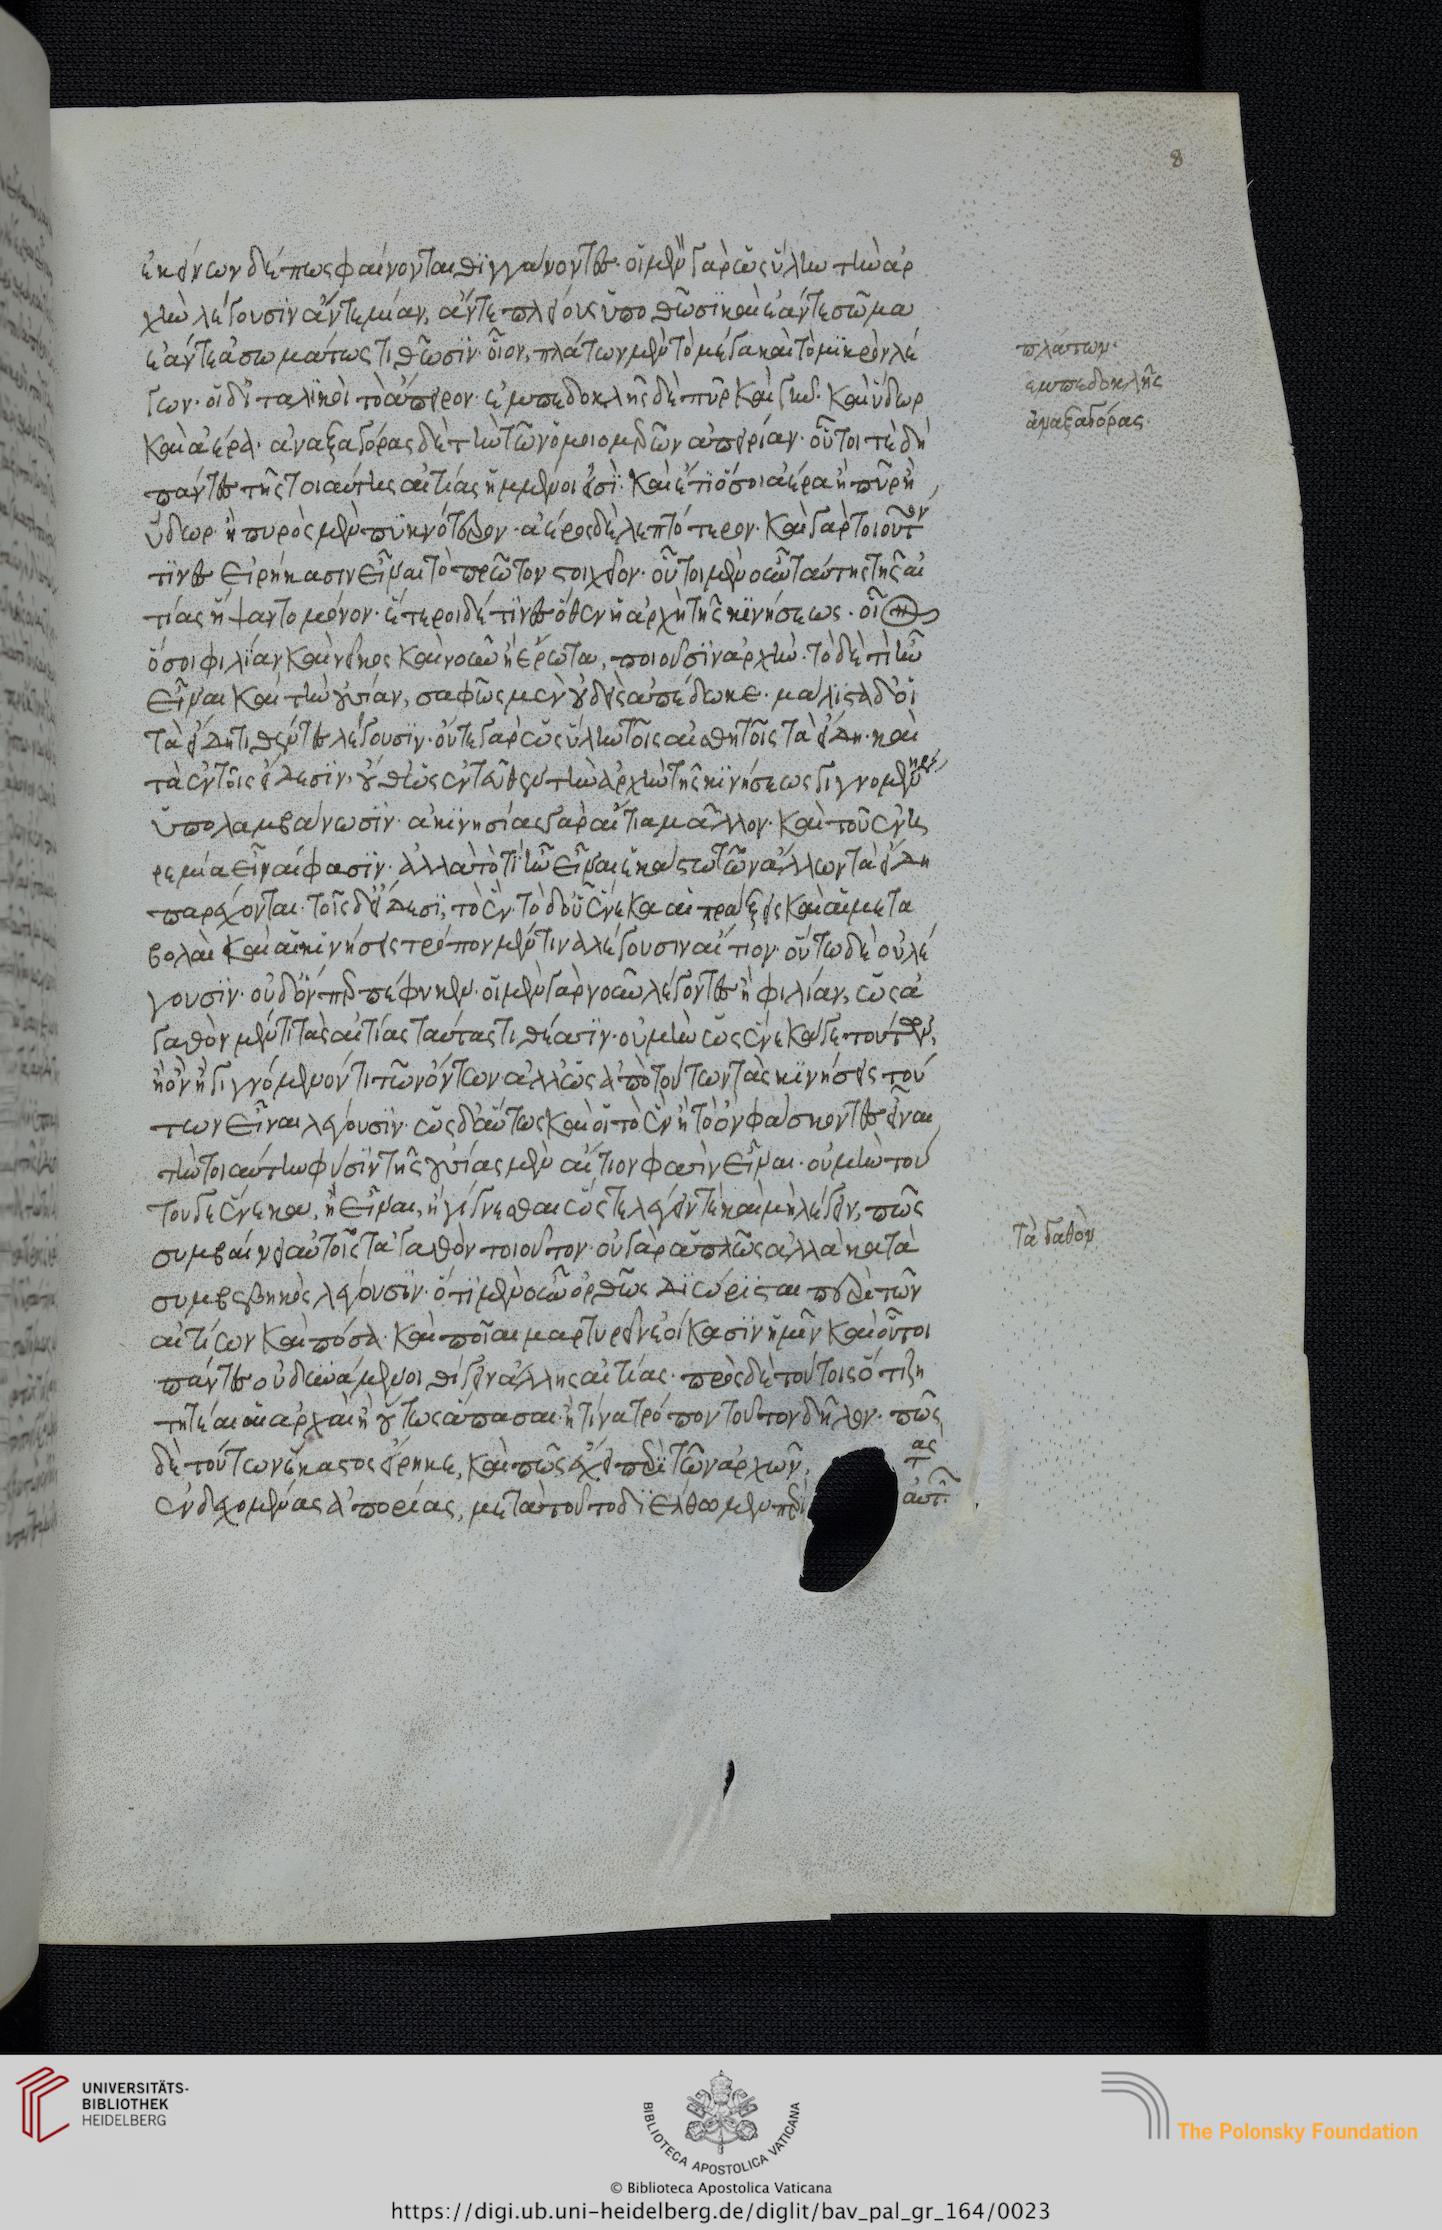 8
ἐκείνων δέ πως φαίνονται θιγγάνοντες· οἱ μὲν γὰρ ὡς ὕλην τὴν ἀρ
χὴν λέγουσιν ἄν τε μίαν, ἄν τε πλείους ὑποθῶσι καὶ ἐάν τε σῶμα
ἐάν τε ἀσωμάτως τιθῶσιν· οἷον, πλάτων μὲν τὸ μέγα καὶ τὸ μικρὸν λέ
γων· οἱ δ' ἰταλικοὶ τὸ ἄπειρον· ἐμπεδοκλῆς δὲ πῦρ καὶ γῆν· καὶ ὕδωρ
καὶ ἀέρα· ἀναξαγόρας δὲ τὴν τῶν ὁμοιομερῶν ἀπειρίαν· οὗτοί τε δὴ
πάντες τῆς τοιαύτης αἰτίας ἡμμένοι εἰσὶ· καὶ ἔτι ὅσοι ἀέρα ἢ πῦρ ἢ
ὕδωρ ἢ πυρὸς μὲν πυκνότερον· ἀέρος δὲ λεπτότερον· καὶ γὰρ τοιοῦτον
τινες εἰρήκασιν εἶναι τὸ πρῶτον στοιχεῖον· οὗτοι μὲν οὖν ταύτης τῆς αἰ
τίας ἥψαντο μόνον· ἕτεροι δέ τινες ὅθεν ἡ ἀρχὴ τῆς κινήσεως· οἷον
ὅσοι φιλίαν καὶ νεῖκος καὶ νοῦν ἢ ἔρωτα, ποιοῦσιν ἀρχήν· τὸ δὲ τί ἦν
εἶναι καὶ τὴν οὐσίαν, σαφῶς μὲν οὐδεὶς ἀπέδωκε· μάλιστα δ' οἱ
τὰ εἴδη τιθέντες λέγουσιν· οὔτε γὰρ ὡς ὕλην τοῖς αἰσθητοῖς τὰ εἴδη· καὶ
τὰ ἐν τοῖς εἴδεσιν· οὔθ' ὡς ἐντεῦθεν τὴν ἀρχὴν τῆς κινήσεως γιγνομένην
ὑπολαμβάνωσιν· ἀκινησίας γὰρ αἴτια μᾶλλον· καὶ τοῦ ἐν ἠ
ρεμία εἶναί φασιν· ἀλλὰ τὸ τί ἦν εἶναι ἑκάστῳ τῶν ἄλλων τὰ εἴδη
παρέχονται· τοῖς δ' εἴδεσι, τὸ ἕν· τὸ δ' οὗ ἕνεκα αἱ πράξεις καὶ αἱ μετα
βολαὶ καὶ αἱ κινήσεις τρόπον μέν τινα λέγουσιν αἴτιον· οὕτω δὲ οὐ λέ
γουσιν· οὐδ' ὅνπερ πέφυκεν· οἱ μὲν γὰρ νοῦν λέγοντες ἢ φιλίαν, ὡς ἀ
γαθὸν μέν τι τὰς αἰτίας ταύτας τιθέασιν· οὐ μὴν ὡς ἕνεκά γε τούτων,
ἢ ὂν ἢ γιγνόμενόν τι τῶν ὄντων ἀλλ' ὡς ἀπὸ τούτων τὰς κινήσεις τού
των εἶναι λέγουσιν· ὡς δ' αὕτως καὶ οἱ τὸ ἓν ἢ τὸ ὂν φάσκοντες εἶναι
τὴν τοιαύτην φύσιν τῆς οὐσίας μὲν αἴτιον φασὶν εἶναι· οὐ μὴν τού
του γε ἕνεκα, ἢ εἶναι, ἢ γίγνεσθαι ὥστε λέγειν τε καὶ μὴ λέγειν, πῶς
συμβαίνει αὐτοῖς τἀγαθὸν ποιοῦτον· οὐ γὰρ ἁπλῶς ἀλλὰ κατὰ
συμβεβηκὸς λέγουσιν· ὅτι μὲν οὖν ὀρθῶς διώρισται περὶ τῶν
αἰτίων καὶ πόσα· καὶ ποῖαι μαρτυρεῖν ἐοίκασιν ἡμῖν καὶ οὗτοι
πάντες οὐ δυνάμενοι θιγεῖν ἄλλης αἰτίας· πρὸς δὲ τούτοις ὅτι ζη
τητέαι αἱ ἀρχαὶ ἢ οὕτως ἅπασαι· ἢ τινα τρόπον τοῦτον δῆλον· πῶς
δὲ τούτων ἕκαστος εἴρηκε, καὶ πῶς ἔχει περὶ τῶν ἀρχῶν, τὰς
ἐνδεχομένας ἀπορίας, μετὰ τοῦτο διέλθωμεν περὶ αὐτῶν·
πλάτων·
ἐμπεδοκλῆς
ἀναξαγόρας·
τἀγαθὸν
UNIVERSITÄTS-
BIBLIOTHEK
HEIDELBERG
BIBLIOTECA APOSTOLICA VATICANA
The Polonsky Foundation
© Biblioteca Apostolica Vaticana
https://digi.ub.uni-heidelberg.de/diglit/bav_pal_gr_164/0023